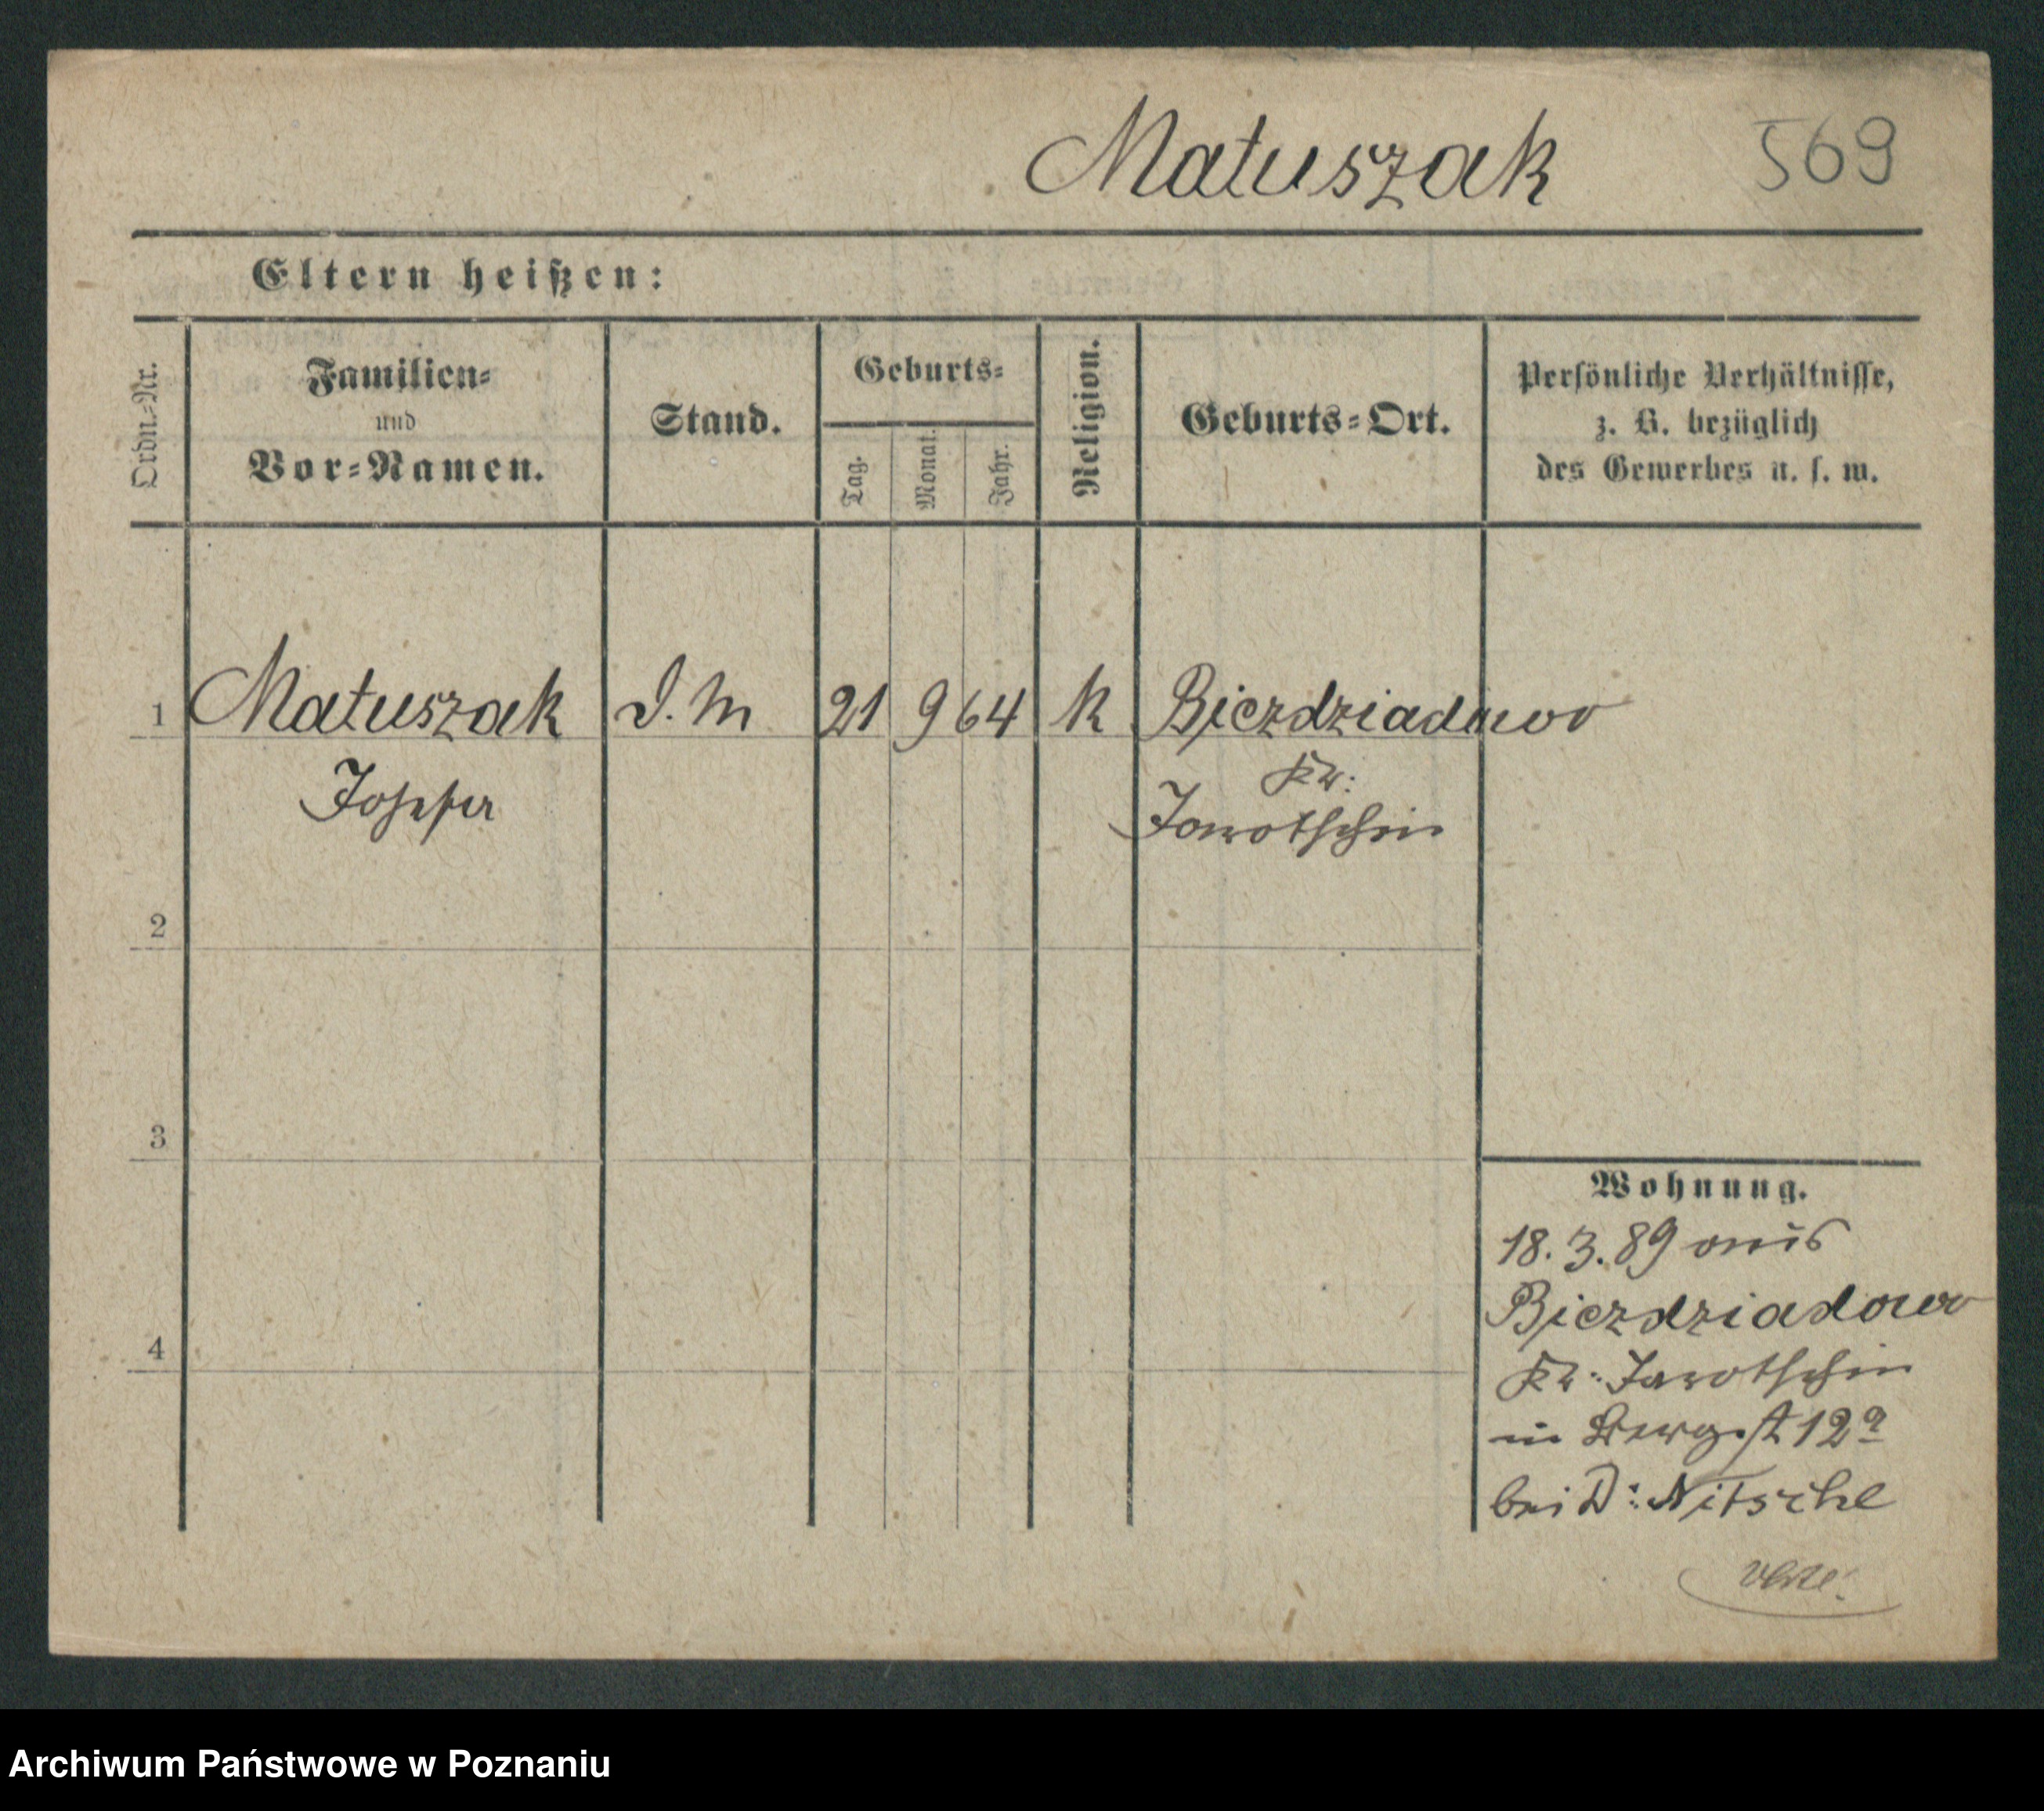 Matuszak 569
Eltern heißen:
Ordn.-Nr.
Familien-
und
Vor-Namen.
Stand.
Geburts-
Tag.
Monat.
Jahr.
Religion.
Geburts-Ort.
Persönliche Verhältnisse,
z. B. bezüglich
des Gewerbes u. s. w.
1 Matuszak D. M 21 9 64 K Biezdziadowo
Josefa
Kr:
Jarotschin
2
3
4
Wohnung.
18. 3. 89 aus
Biezdziadowo
Kr: Jarotschin
in Bergst 12a
bei D: Nitsche
Archiwum Państwowe w Poznaniu